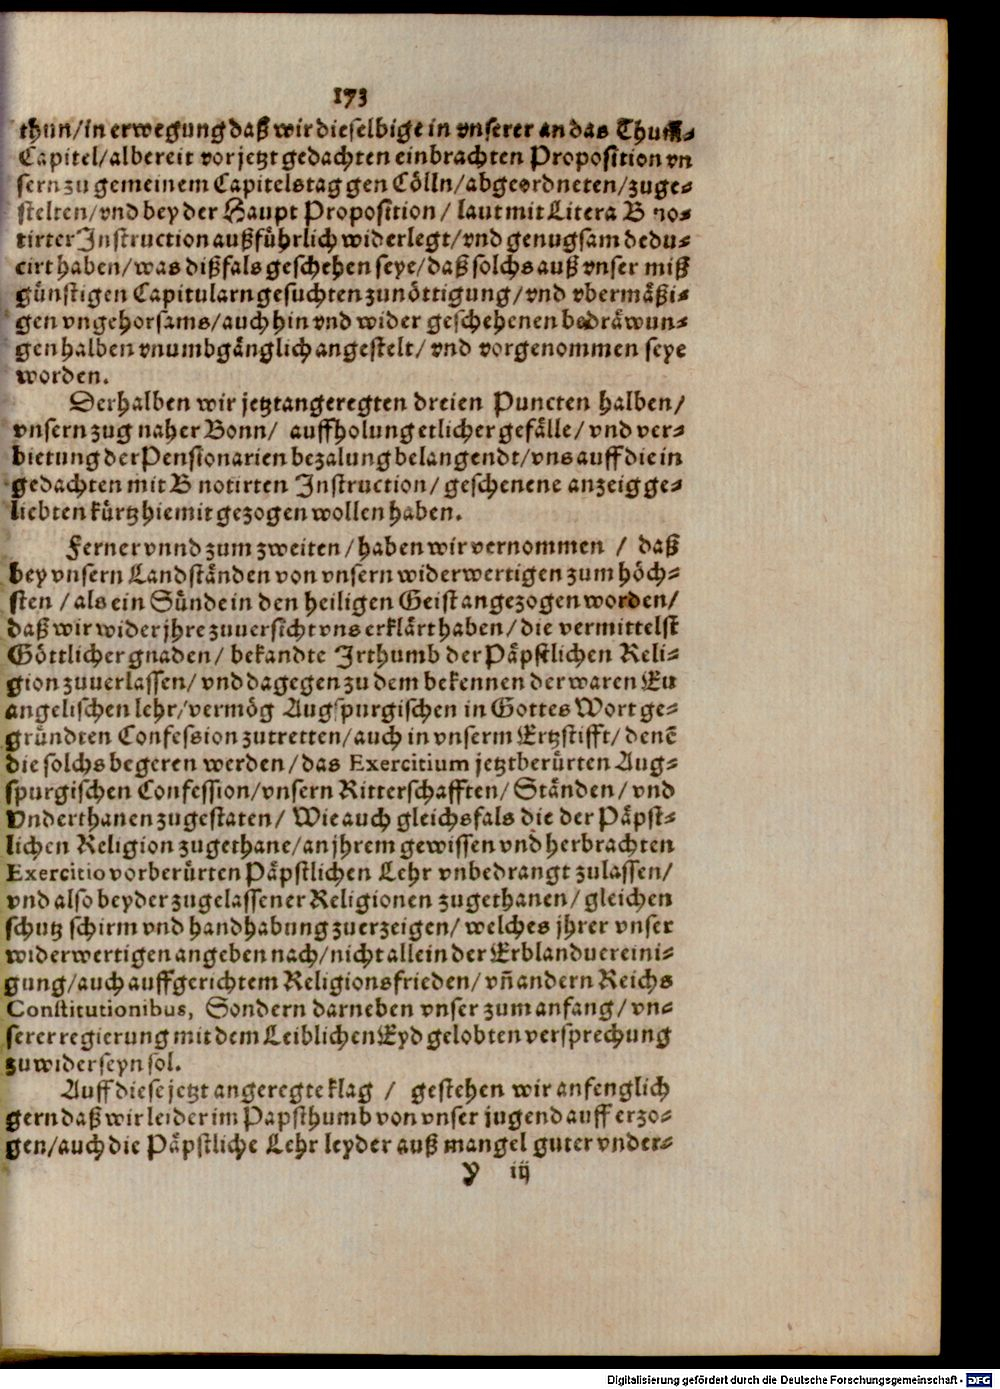 173
thun/in erwegung daß wir dieselbige in vnserer an das Thum⸗
Capitel/albereit vor jetzt gedachten einbrachten Proposition vn
sern zu gemeinem Capitelstag gen Cölln/abgeordneten/zuge⸗
stelten/vnd bey der Haupt Proposition / laut mit Litera B no⸗
tirter Instruction außführlich widerlegt/vnd genugsam dedu⸗
cirt haben/was dißfals geschehen seye/daß solchs auß vnser miß
günstigen Capitularn gesuchten zunöttigung/vnd vbermäßi⸗
gen vngehorsams/auch hin vnd wider geschehenen bedräwun⸗
gen halben vnumbgänglich angestelt/ vnd vorgenommen seye
worden.
Derhalben wir jetztangeregten dreien Puncten halben/
vnsern zug naher Bonn/ auffholung etlicher gefälle/ vnd ver⸗
bietung der Pensionarien bezalung belangendt/vns auff die in
gedachten mit B notirten Instruction/ geschenene anzeig ge⸗
liebten kürtz hiemit gezogen wollen haben.
Ferner vnnd zum zweiten/haben wir vernommen / daß
bey vnsern Landständen von vnsern widerwertigen zum höch⸗
sten /als ein Sünde in den heiligen Geist angezogen worden/
daß wir wider jhre zuuersicht vns erklärt haben/ die vermittelst
Göttlicher gnaden/ bekandte Irthumb der Päpstlichen Reli⸗
gion zuuerlassen/ vnd dagegen zu dem bekennen der waren Eu
angelischen lehr/vermög Augspurgischen in Gottes Wort ge⸗
gründten Confession zutretten/auch in vnserm Ertzstifft/ denē
die solchs begeren werden/das Exercitium jetztberürten Aug⸗
spurgischen Confession/vnsern Ritterschafften/ Ständen/ vnd
Vnderthanen zugestaten/ Wie auch gleichsfals die der Päpst⸗
lichen Religion zugethane/an jhrem gewissen vnd herbrachten
Exercitio vorberürten Päpstlichen Lehr vnbedrangt zulassen/
vnd also beyder zugelassener Religionen zugethanen/ gleichen
schutz schirm vnd handhabung zuerzeigen/ welches jhrer vnser
widerwertigen angeben nach/nicht allein der Erblanduereini⸗
gung/auch auffgerichtem Religionsfrieden/ vñ andern Reichs
Constitutionibus, Sondern darneben vnser zum anfang/ vn⸗
serer regierung mit dem Leiblichen Eyd gelobten versprechung
zu wider seyn sol.
Auff diese jetzt angeregte klag / gestehen wir anfenglich
gern daß wir leider im Papsthumb von vnser jugend auff erzo⸗
gen/auch die Päpstliche Lehr leyder auß mangel guter vnder⸗
Y iij
Digitalisierung gefördert durch die Deutsche Forschungsgemeinschaft - DFG